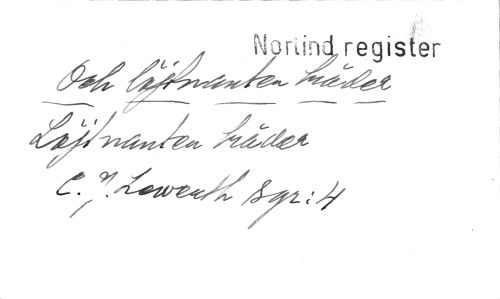 Norlind, register
Och löjtnanten träder
Löjtnanten träder
C. J. Lewerth Bgr: 4